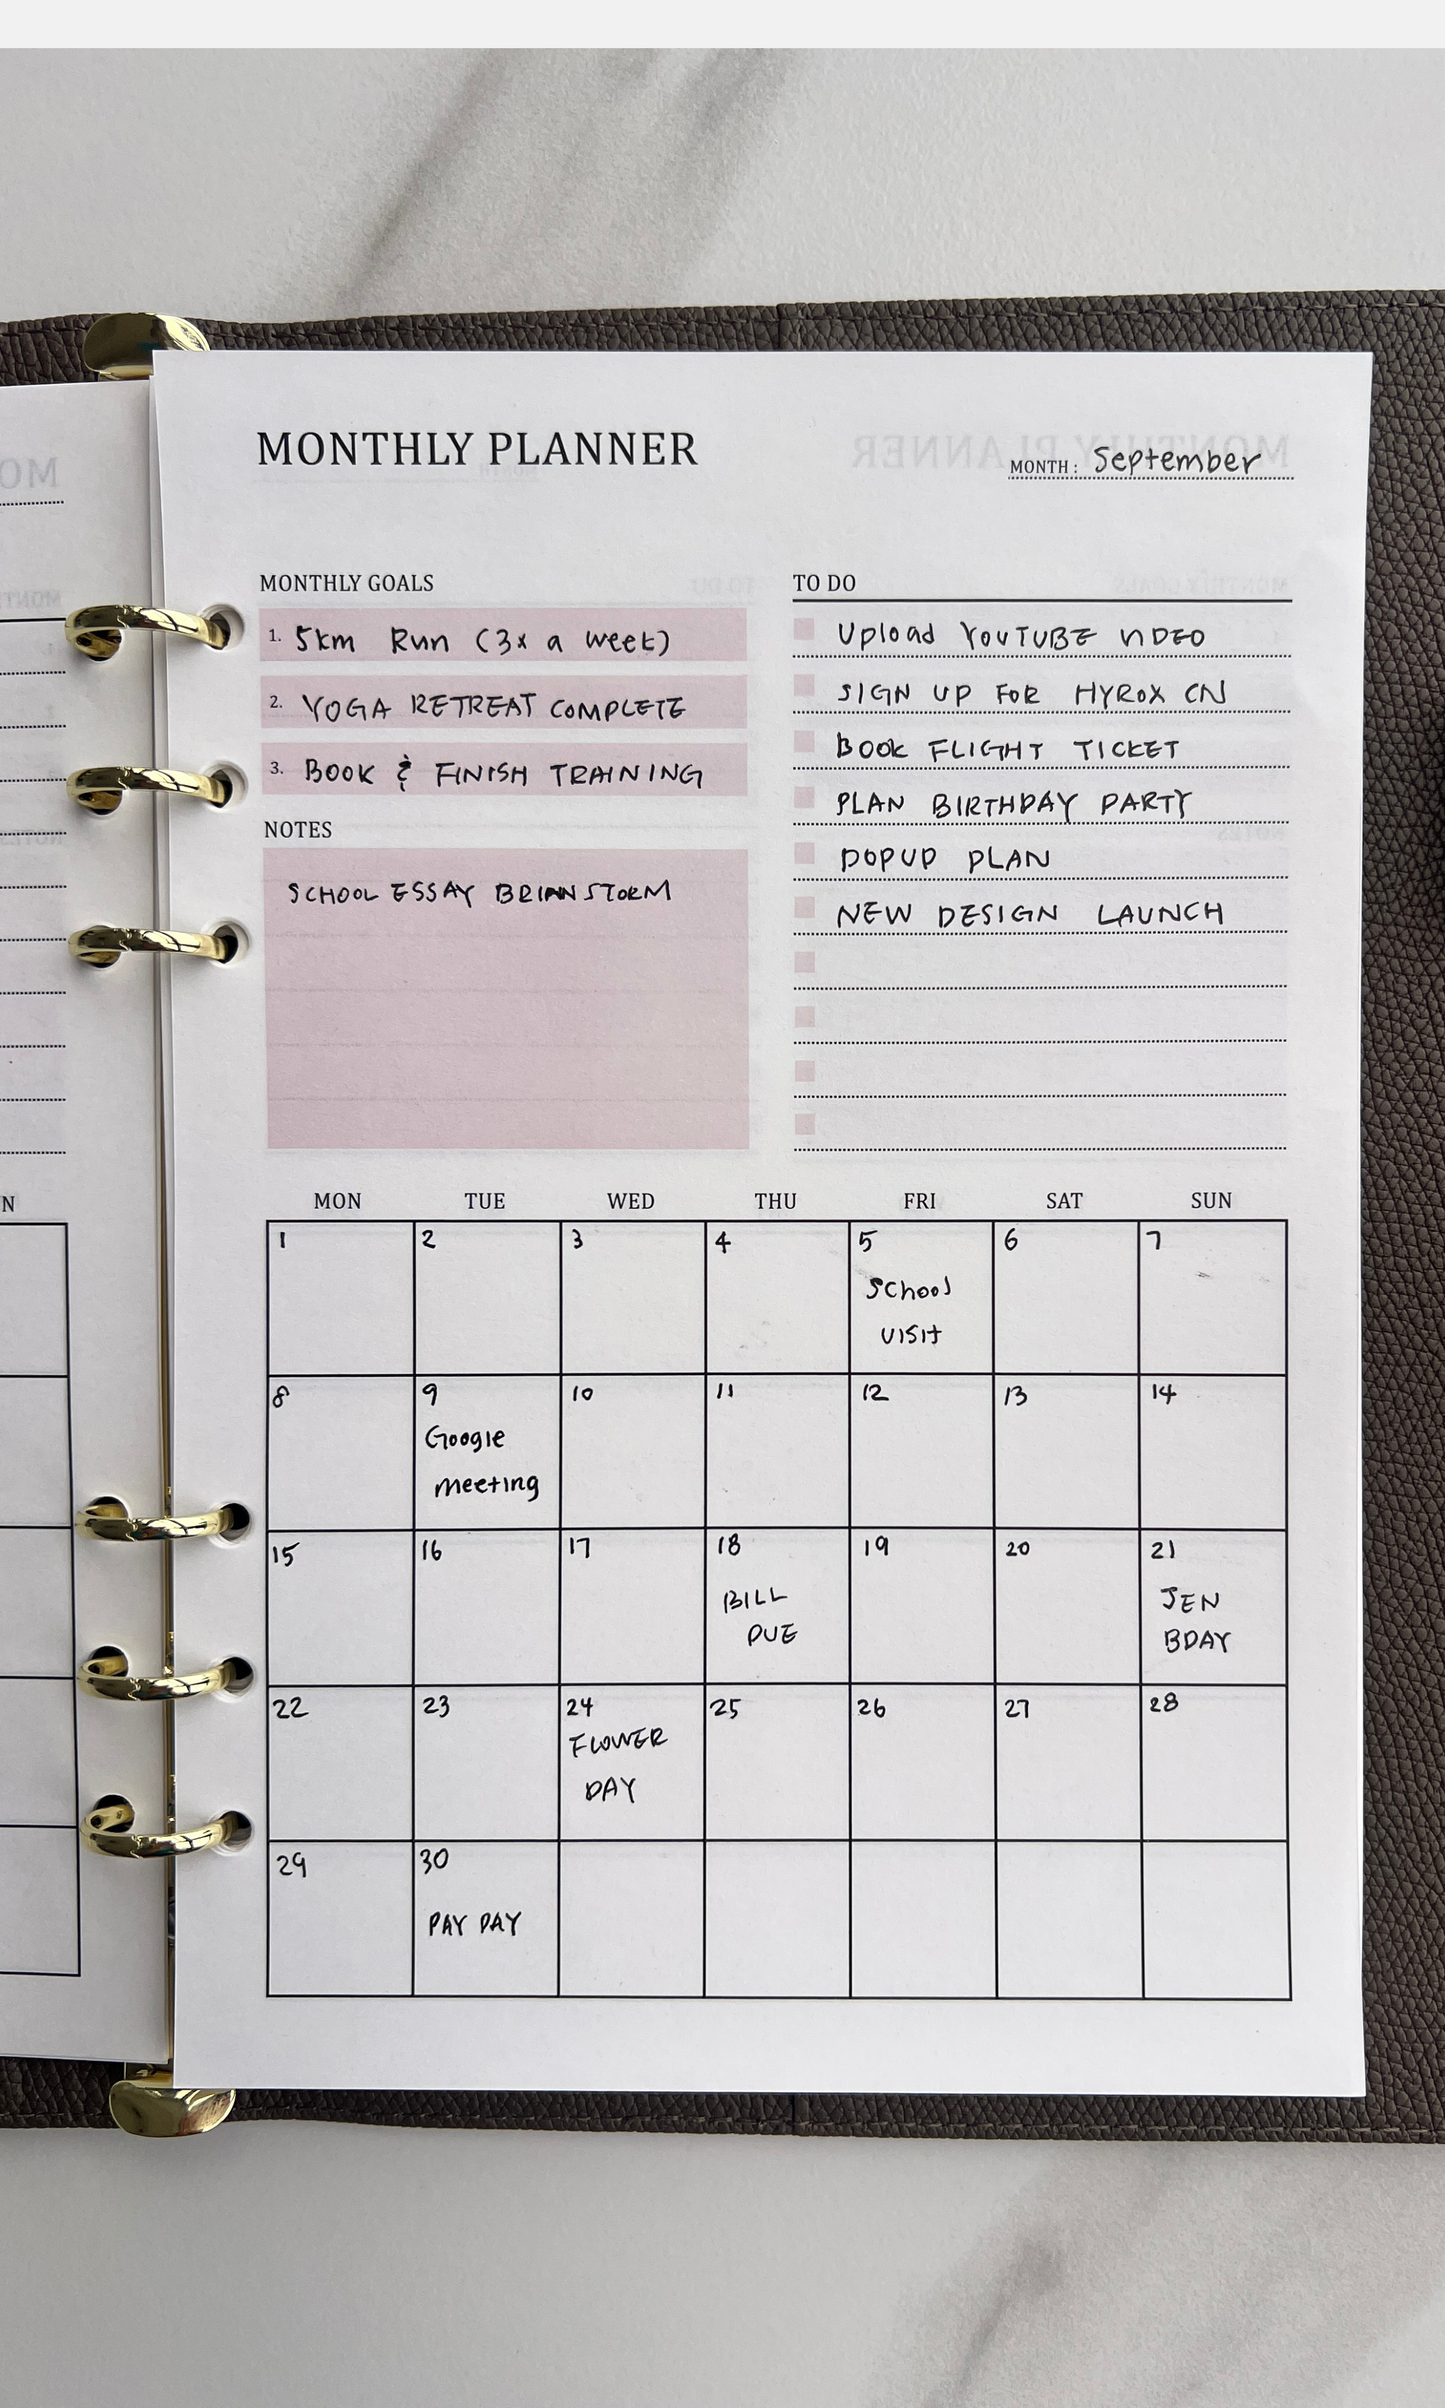 MONTHLY PLANNER
MONTH: September
MONTHLY GOALS
1. 5km Run (3x a week)
2. YOGA RETREAT COMPLETE
3. BOOK & FINISH TRAINING
NOTES
SCHOOL ESSAY BRIANSTORM
TO DO
Upload YOUTUBE VIDEO
SIGN UP FOR HYROX CN
BOOK FLIGHT TICKET
PLAN BIRTHDAY PARTY
POPUP PLAN
NEW DESIGN LAUNCH
MON TUE WED THU FRI SAT SUN
1 2 3 4 5 6 7
School
visit
8 9 10 11 12 13 14
Google
meeting
15 16 17 18 19 20 21
BILL
DUE
JEN
BDAY
22 23 24 25 26 27 28
FLOWER
DAY
29 30
PAY DAY